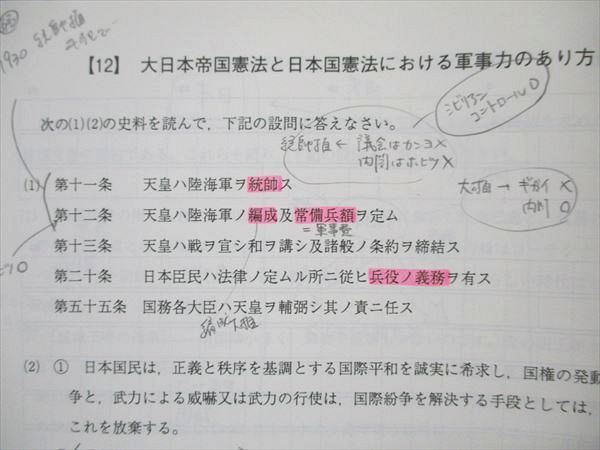 1930 統帥権
【12】 大日本帝国憲法と日本国憲法における軍事力のあり方
シビリアン
コントロール〇
次の(1)(2)の史料を読んで，下記の設問に答えなさい。
統帥権 ← 議会はカンヨ×
内閣はホヒツ×
(1) 第十一条 天皇ハ陸海軍ヲ統帥ス
大権 → ギカイ ×
内閣 〇
第十二条 天皇ハ陸海軍ノ編成及常備兵額ヲ定ム
＝軍事費
第十三条 天皇ハ戦ヲ宣シ和ヲ講シ及諸般ノ条約ヲ締結ス
第二十条 日本臣民ハ法律ノ定ムル所ニ従ヒ兵役ノ義務ヲ有ス
第五十五条 国務各大臣ハ天皇ヲ輔弼シ其ノ責ニ任ス
編成大権
(2) ① 日本国民は，正義と秩序を基調とする国際平和を誠実に希求し，国権の発動
争と，武力による威嚇又は武力の行使は，国際紛争を解決する手段としては，
これを放棄する。